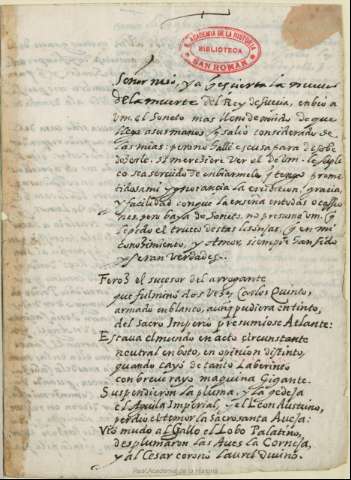 R. ACADEMIA DE LA HISTORIA
BIBLIOTECA
SAN ROMAN
Señor mio, ya es çierta la nueua
de la muerte del Rey de Suecia, enbio a
Vm. el Soneto mas lleno de de que
llego a sus manos, y salio considerado de
las mias: pero no hallè escusa para desobe
deserle. Si meresiere ver el de Vm. le suplico
sea seruido de enbiarmele,
y ygnorancia la gracia,
y facilidad con que la enseña en todas ocassio
nes, pero baya de Sonetos, no presuma Vm. q̃
le pido el trueco destas lisonjas, q̃ en mi
conosimiento, y Amor, siempre han sido
y seran verdades.
Feroz el sucesor del arrogante
que fulminó dos vezes Carlos Quinto,
armado en blanco, aunq̃ pudiera en tinto,
del Sacro Imperio presumiose Atlante:
Estaua el mundo en acto circunstante
neutral en boto, en opinion distinto,
quando cayò de tanto Laberinto
con breue rayo maquina Gigante.
Suspendieron la pluma, y la gedeja
el Aguila Imperial, y el Leon Austrino,
perdio el temor la Sacrosanta Aueja:
Vio mudo al Gallo el Lobo Palatino,
desplumaron las Aues la Corneja,
y al Cesar coronò Laurel diuino.
Real Academia de la Historia